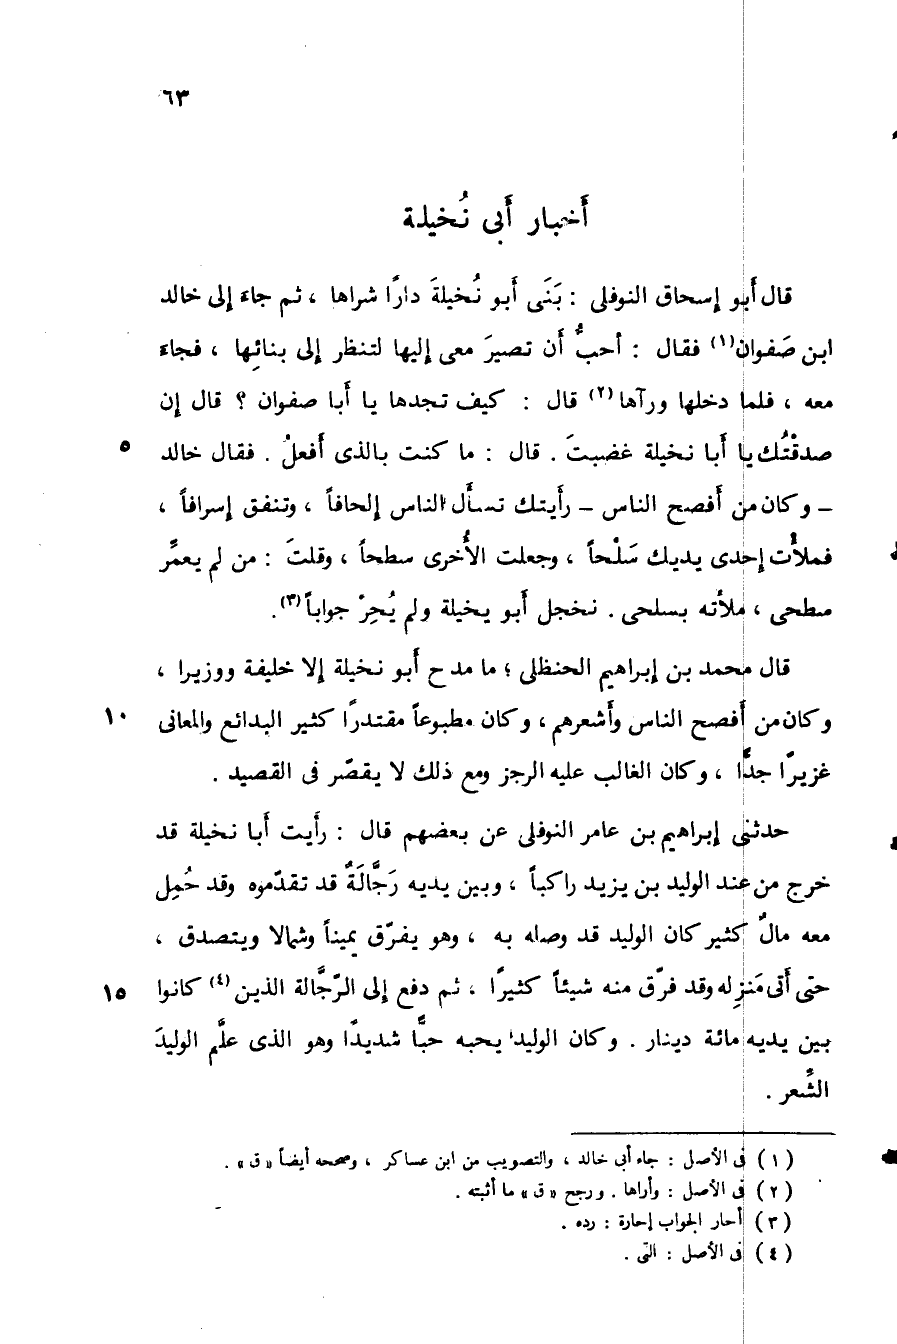 ٦٣
أخبار أبى نُخيلة
قال أبو إسحاق النوفلى : بَنَى أبو نُخيلةَ دارًا شراها ، ثم جاء إلى خالد
ابن صَفوان(١) فقال : أحبُّ أن تصيرَ معى إليها لتنظر إلى بنائِها ، فجاء
معه ، فلما دخلها ورآها(٢) قال : كيف تجدها يا أبا صفوان ؟ قال إن
صدقْتُك يا أبا نخيلة غضبتَ . قال : ما كنت بالذى أفعلُ . فقال خالد
٥
– وكان من أفصح الناس – رأيتك تسأل الناس إلحافاً ، وتنفق إسرافاً ،
فملأْت إحدى يديك سَلْحاً ، وجعلت الأُخرى سطحاً ، وقلتَ : من لم يعمَّر
سطحى ، ملأته بسلحى . نخجل أبو يخيلة ولم يُحِرْ جواباً(٣).
قال محمد بن إبراهيم الحنظلى ؛ ما مدح أبو نخيلة إلا خليفة ووزيرا ،
وكان من أفصح الناس وأشعرهم ، وكان مطبوعاً مقتدرًا كثير البدائع والمعانى
١٠
غزيرًا جدًّا ، وكان الغالب عليه الرجز ومع ذلك لا يقصّر فى القصيد .
حدثنى إبراهيم بن عامر النوفلى عن بعضهم قال : رأيت أبا نخيلة قد
خرج من عند الوليد بن يزيد راكباً ، وبين يديه رَجَّالَةٌ قد تقدّموه وقد حُمِل
معه مالٌ كثير كان الوليد قد وصله به ، وهو يفرّق يميناً وشمالا ويتصدق ،
حتى أتى مَنزِله وقد فرّق منه شيئاً كثيرًا ، ثم دفع إلى الرّجَّالة الذين(٤) كانوا
١٥
بين يديه مائة دينار . وكان الوليد يحبه حبًّا شديدًا وهو الذى علَّم الوليدَ
الشِّعر .
(١) فى الأصل : جاء أبى خالد ، والتصويب من ابن عساكر ، وصححه أيضاً « ق » .
(٢) فى الأصل : وأراها . ورجح « ق » ما أثبته .
(٣) أحار الجواب إحارة : رده .
(٤) فى الأصل : التى .